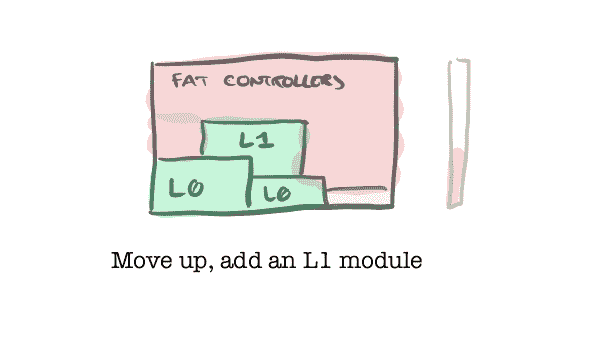 FAT CONTROLLERS
L1
L0
L0
Move up, add an L1 module